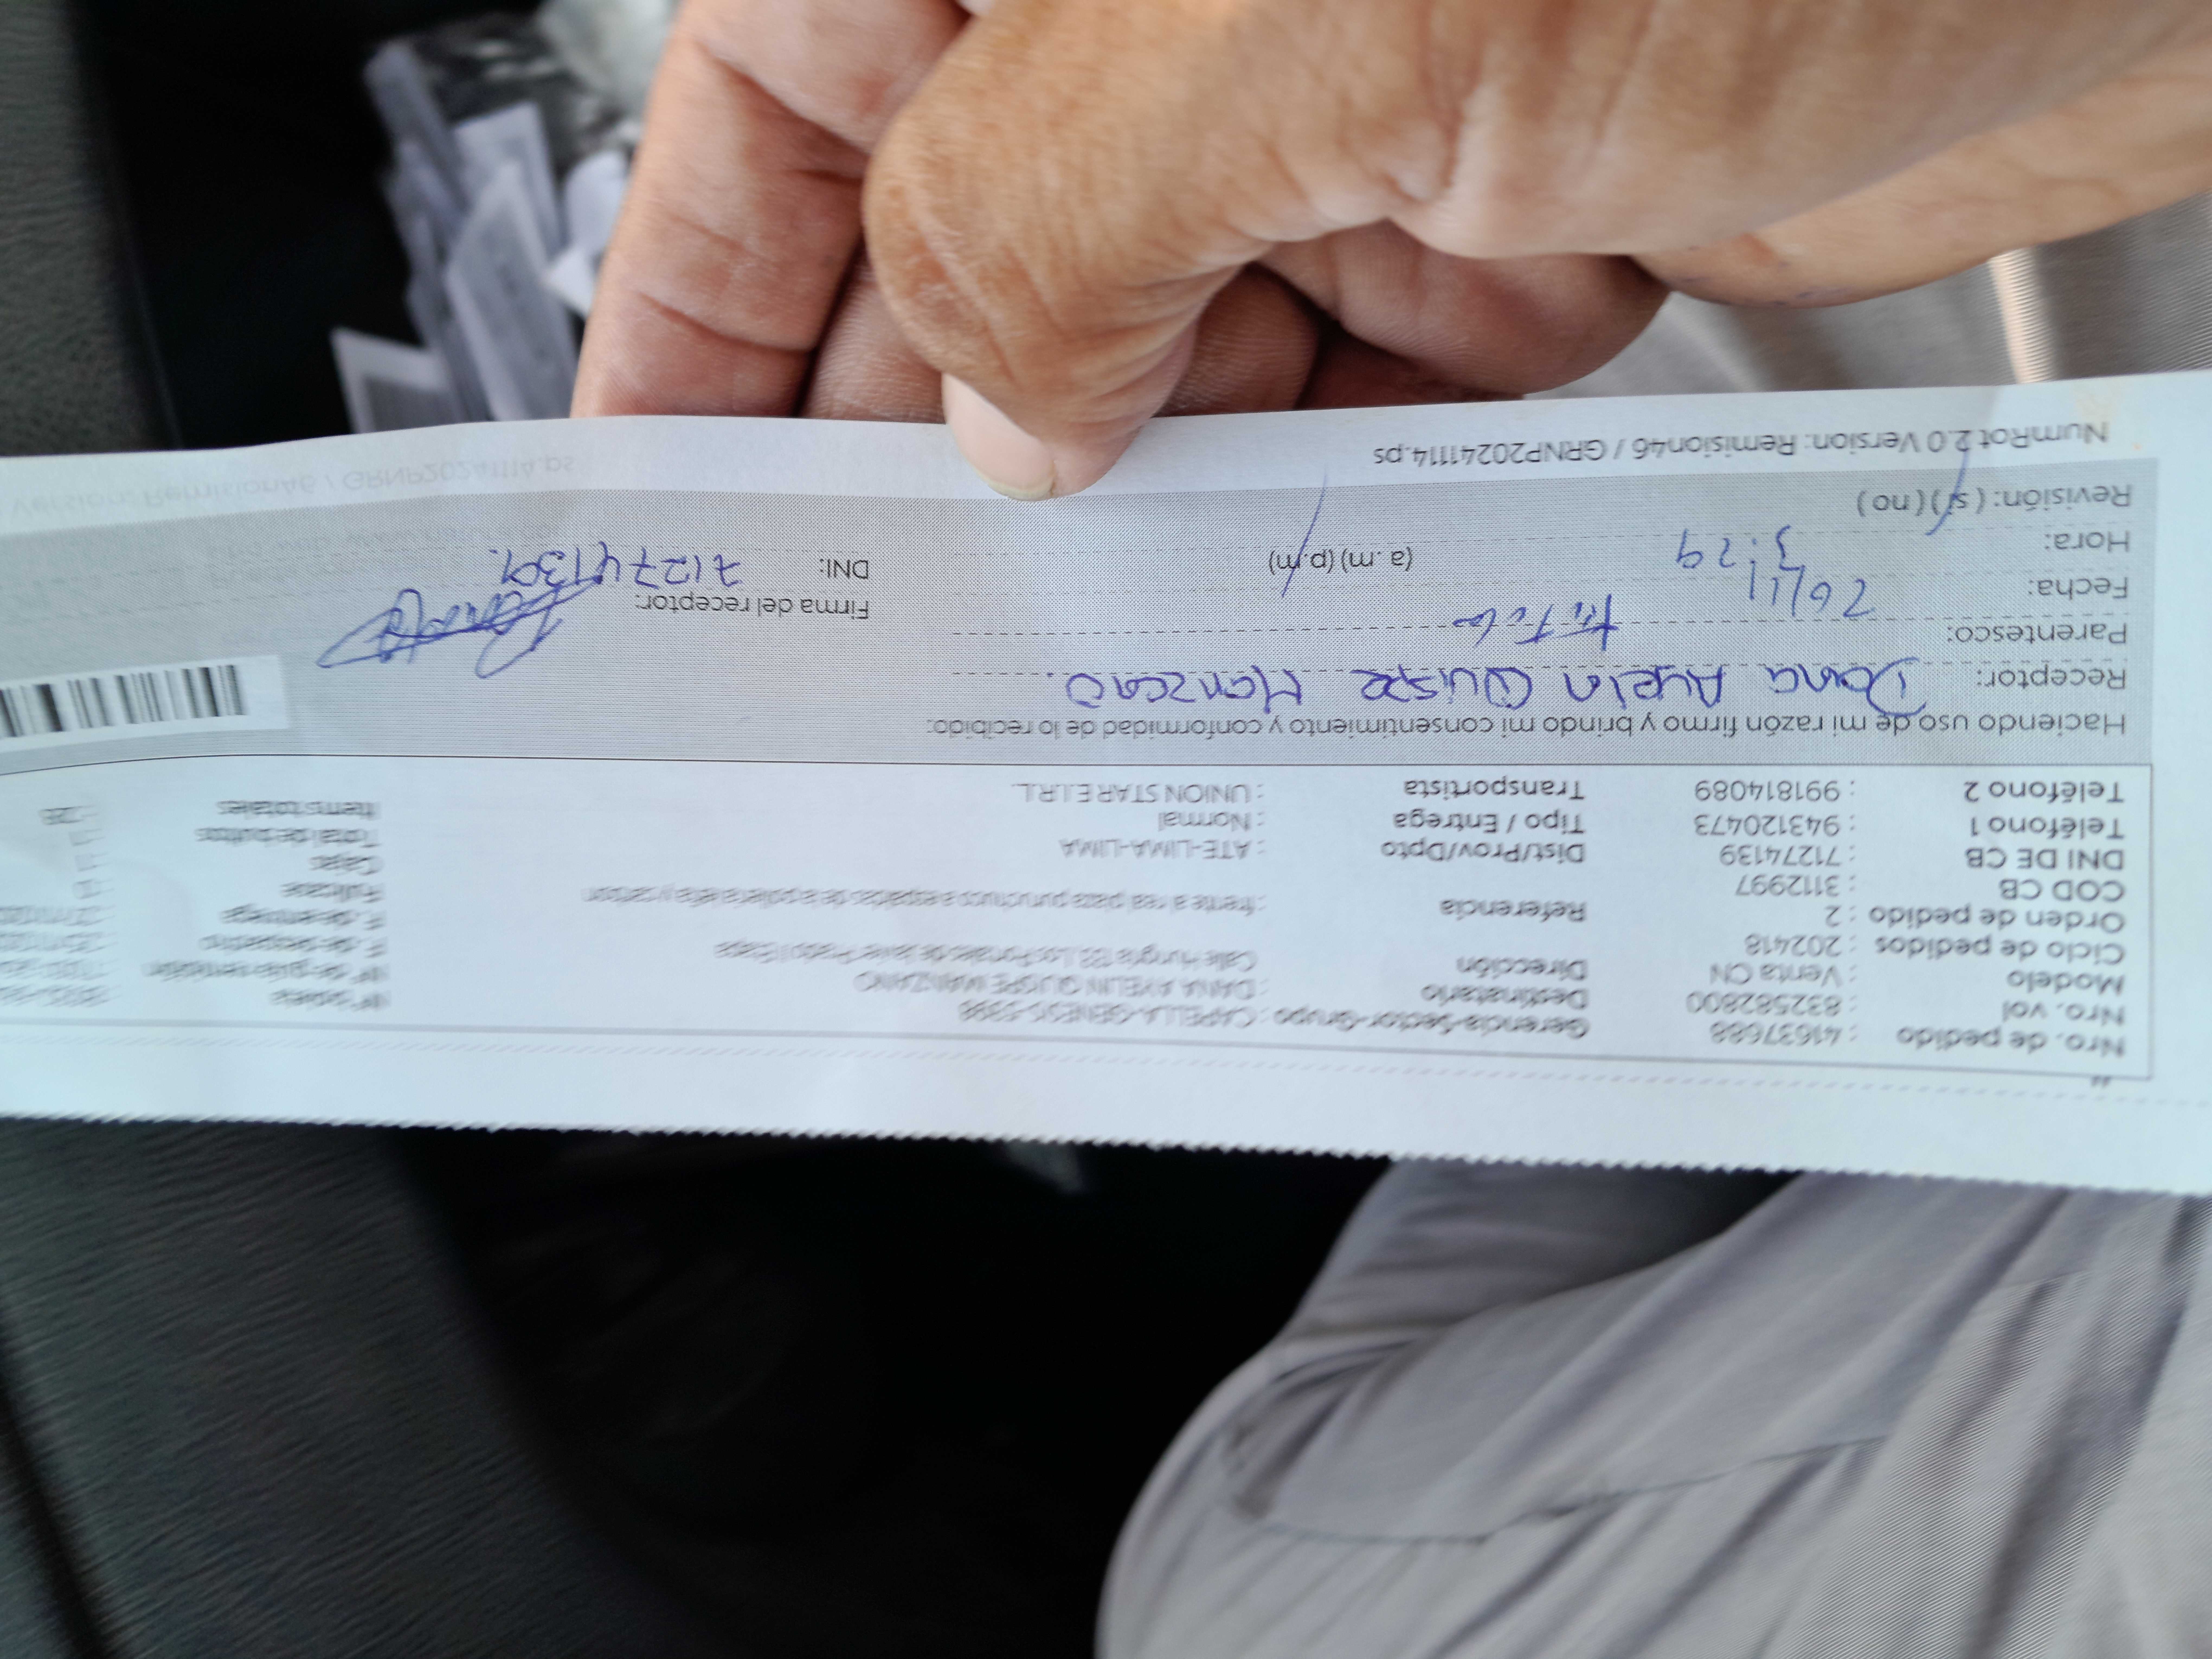 Nro. de pedido : 41637688 Gerencia-Sector-Grupo : CAPELLA-GENESIS-5398
Nro. vol : 832582800 Destinatario : DANA AYELIN QUISPE MANZANO
Modelo : Venta CN Dirección Calle Hungría 133, Los Portales de Javier Prado I Etapa
Ciclo de pedidos : 202418
Orden de pedido : 2 Referencia : frente a real plaza puruchuco a espaldas de a polleria leña y carbon
COD CB : 3112997
DNI DE CB : 71274139 Dist/Prov/Dpto : ATE-LIMA-LIMA
Teléfono 1 : 943120473 Tipo / Entrega : Normal
Teléfono 2 : 991814089 Transportista : UNION STAR E.I.R.L.
F. de entrega
Fullcase
Cajas
Total de bultos
Items totales
Haciendo uso de mi razón firmo y brindo mi consentimiento y conformidad de lo recibido:
Receptor: Dana Ayelin Quispe Manzano.
Parentesco: titular
Fecha: 26/11 Firma del receptor:
Hora: 3:29 (a.m) (p.m) DNI: 71274139.
Revisión: ( si ) ( no )
NumRot 2.0 Version: Remision46 / GRNP20241114.ps